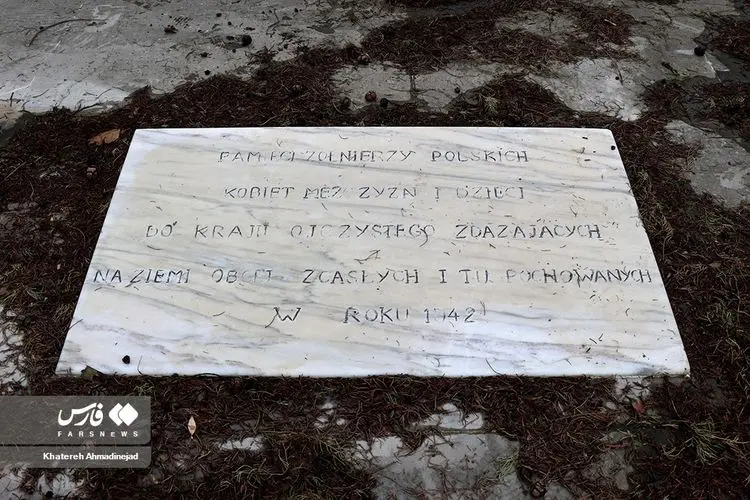 PAMIĘCI ŻOŁNIERZY POLSKICH
KOBIET MĘŻCZYZN I DZIECI
DO KRAJU OJCZYSTEGO ZDĄŻAJĄCYCH
NA ZIEMI OBCEJ ZGASŁYCH I TU POCHOWANYCH
W ROKU 1942
فارس
FARSNEWS
Khatereh Ahmadinejad